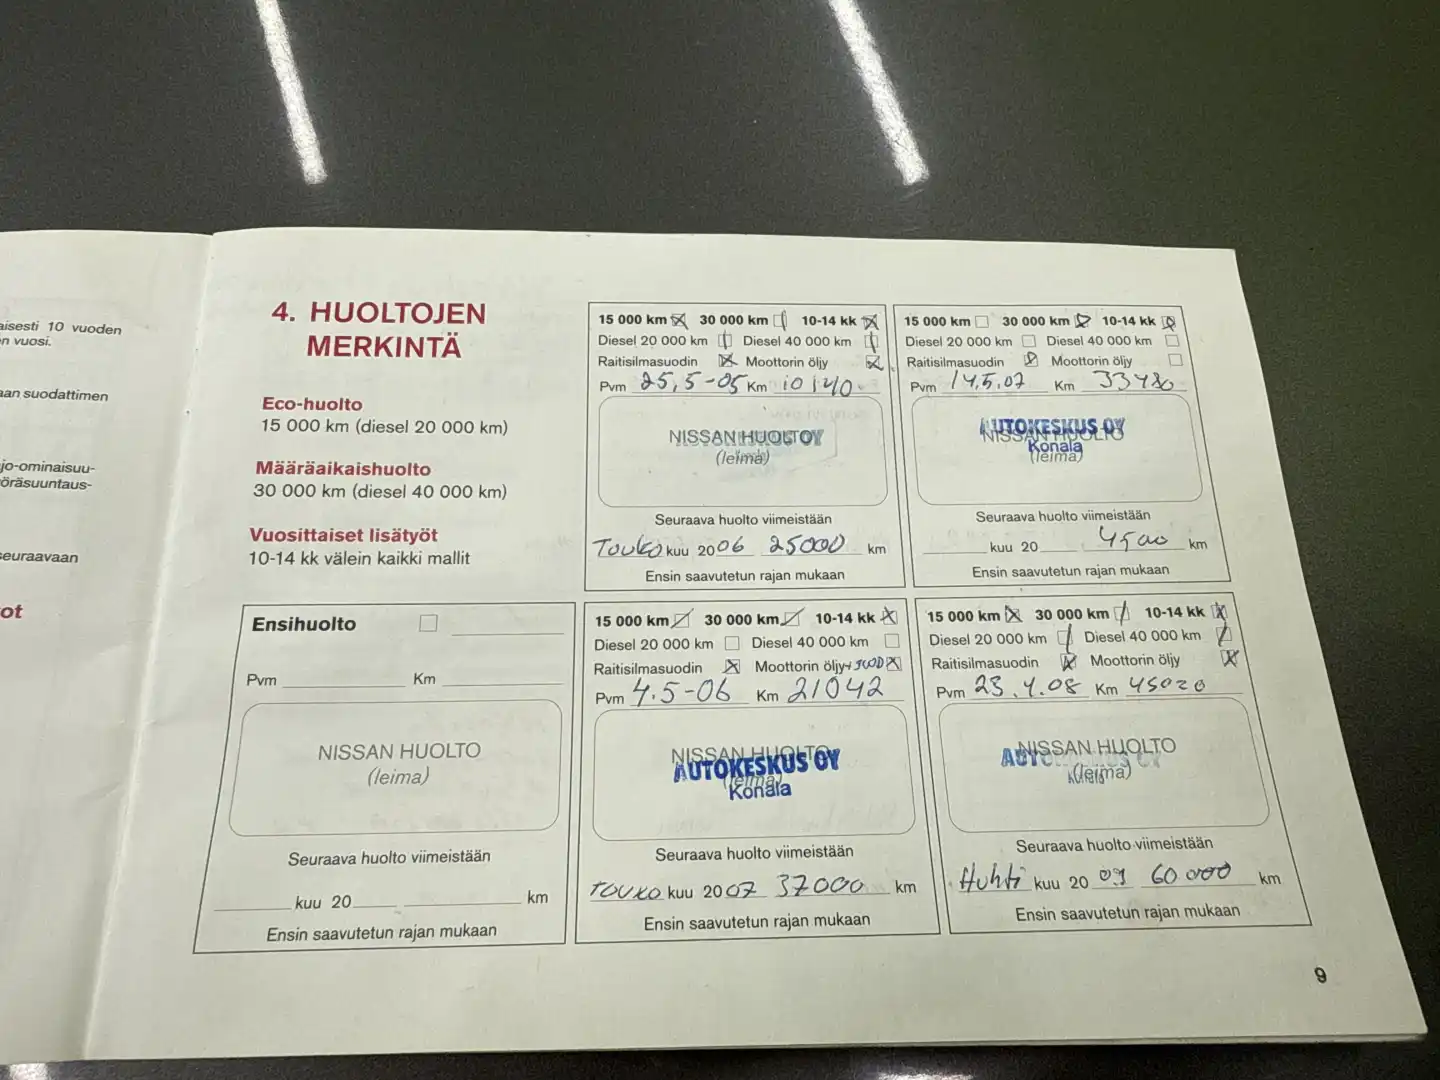 aisesti 10 vuoden
n vuosi.
aan suodattimen
jo-ominaisuu-
öräsuuntaus-
seuraavaan
ot
4. HUOLTOJEN
MERKINTÄ
Eco-huolto
15 000 km (diesel 20 000 km)
Määräaikaishuolto
30 000 km (diesel 40 000 km)
Vuosittaiset lisätyöt
10-14 kk välein kaikki mallit
15 000 km 30 000 km 10-14 kk
Diesel 20 000 km Diesel 40 000 km
Raitisilmasuodin Moottorin öljy
Pvm 25,5-05 Km 10140
NISSAN HUOLTO
(leima)
Seuraava huolto viimeistään
Touko kuu 2006 25000 km
Ensin saavutetun rajan mukaan
15 000 km 30 000 km 10-14 kk
Diesel 20 000 km Diesel 40 000 km
Raitisilmasuodin Moottorin öljy
Pvm 14.5.07 Km 33480
AUTOKESKUS OY
NISSAN HUOLTO
Konala
(leima)
Seuraava huolto viimeistään
kuu 20 km
Ensin saavutetun rajan mukaan
Ensihuolto
Pvm Km
NISSAN HUOLTO
(leima)
Seuraava huolto viimeistään
kuu 20 km
Ensin saavutetun rajan mukaan
15 000 km 30 000 km 10-14 kk
Diesel 20 000 km Diesel 40 000 km
Raitisilmasuodin Moottorin öljy
Pvm 4.5-06 Km 21042
NISSAN HUOLTO
AUTOKESKUS OY
(leima)
Konala
Seuraava huolto viimeistään
Touko kuu 2007 37000 km
Ensin saavutetun rajan mukaan
15 000 km 30 000 km 10-14 kk
Diesel 20 000 km Diesel 40 000 km
Raitisilmasuodin Moottorin öljy
Pvm 23.4.08 Km 45020
NISSAN HUOLTO
(leima)
Seuraava huolto viimeistään
Huhti kuu 2009 60000 km
Ensin saavutetun rajan mukaan
9